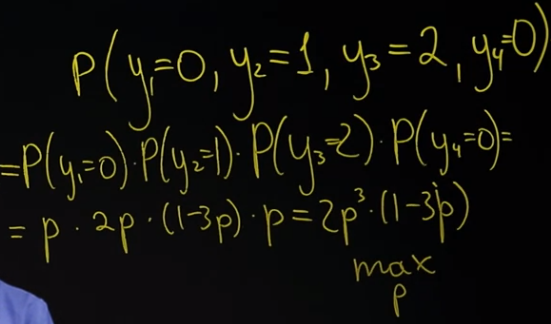 P(y₁=0, y₂=1, y₃=2, y₄=0)
=P(y₁=0)·P(y₂=1)·P(y₃=2)·P(y₄=0)=
= p · 2p · (1-3p) · p = 2p³·(1-3p)
max
p